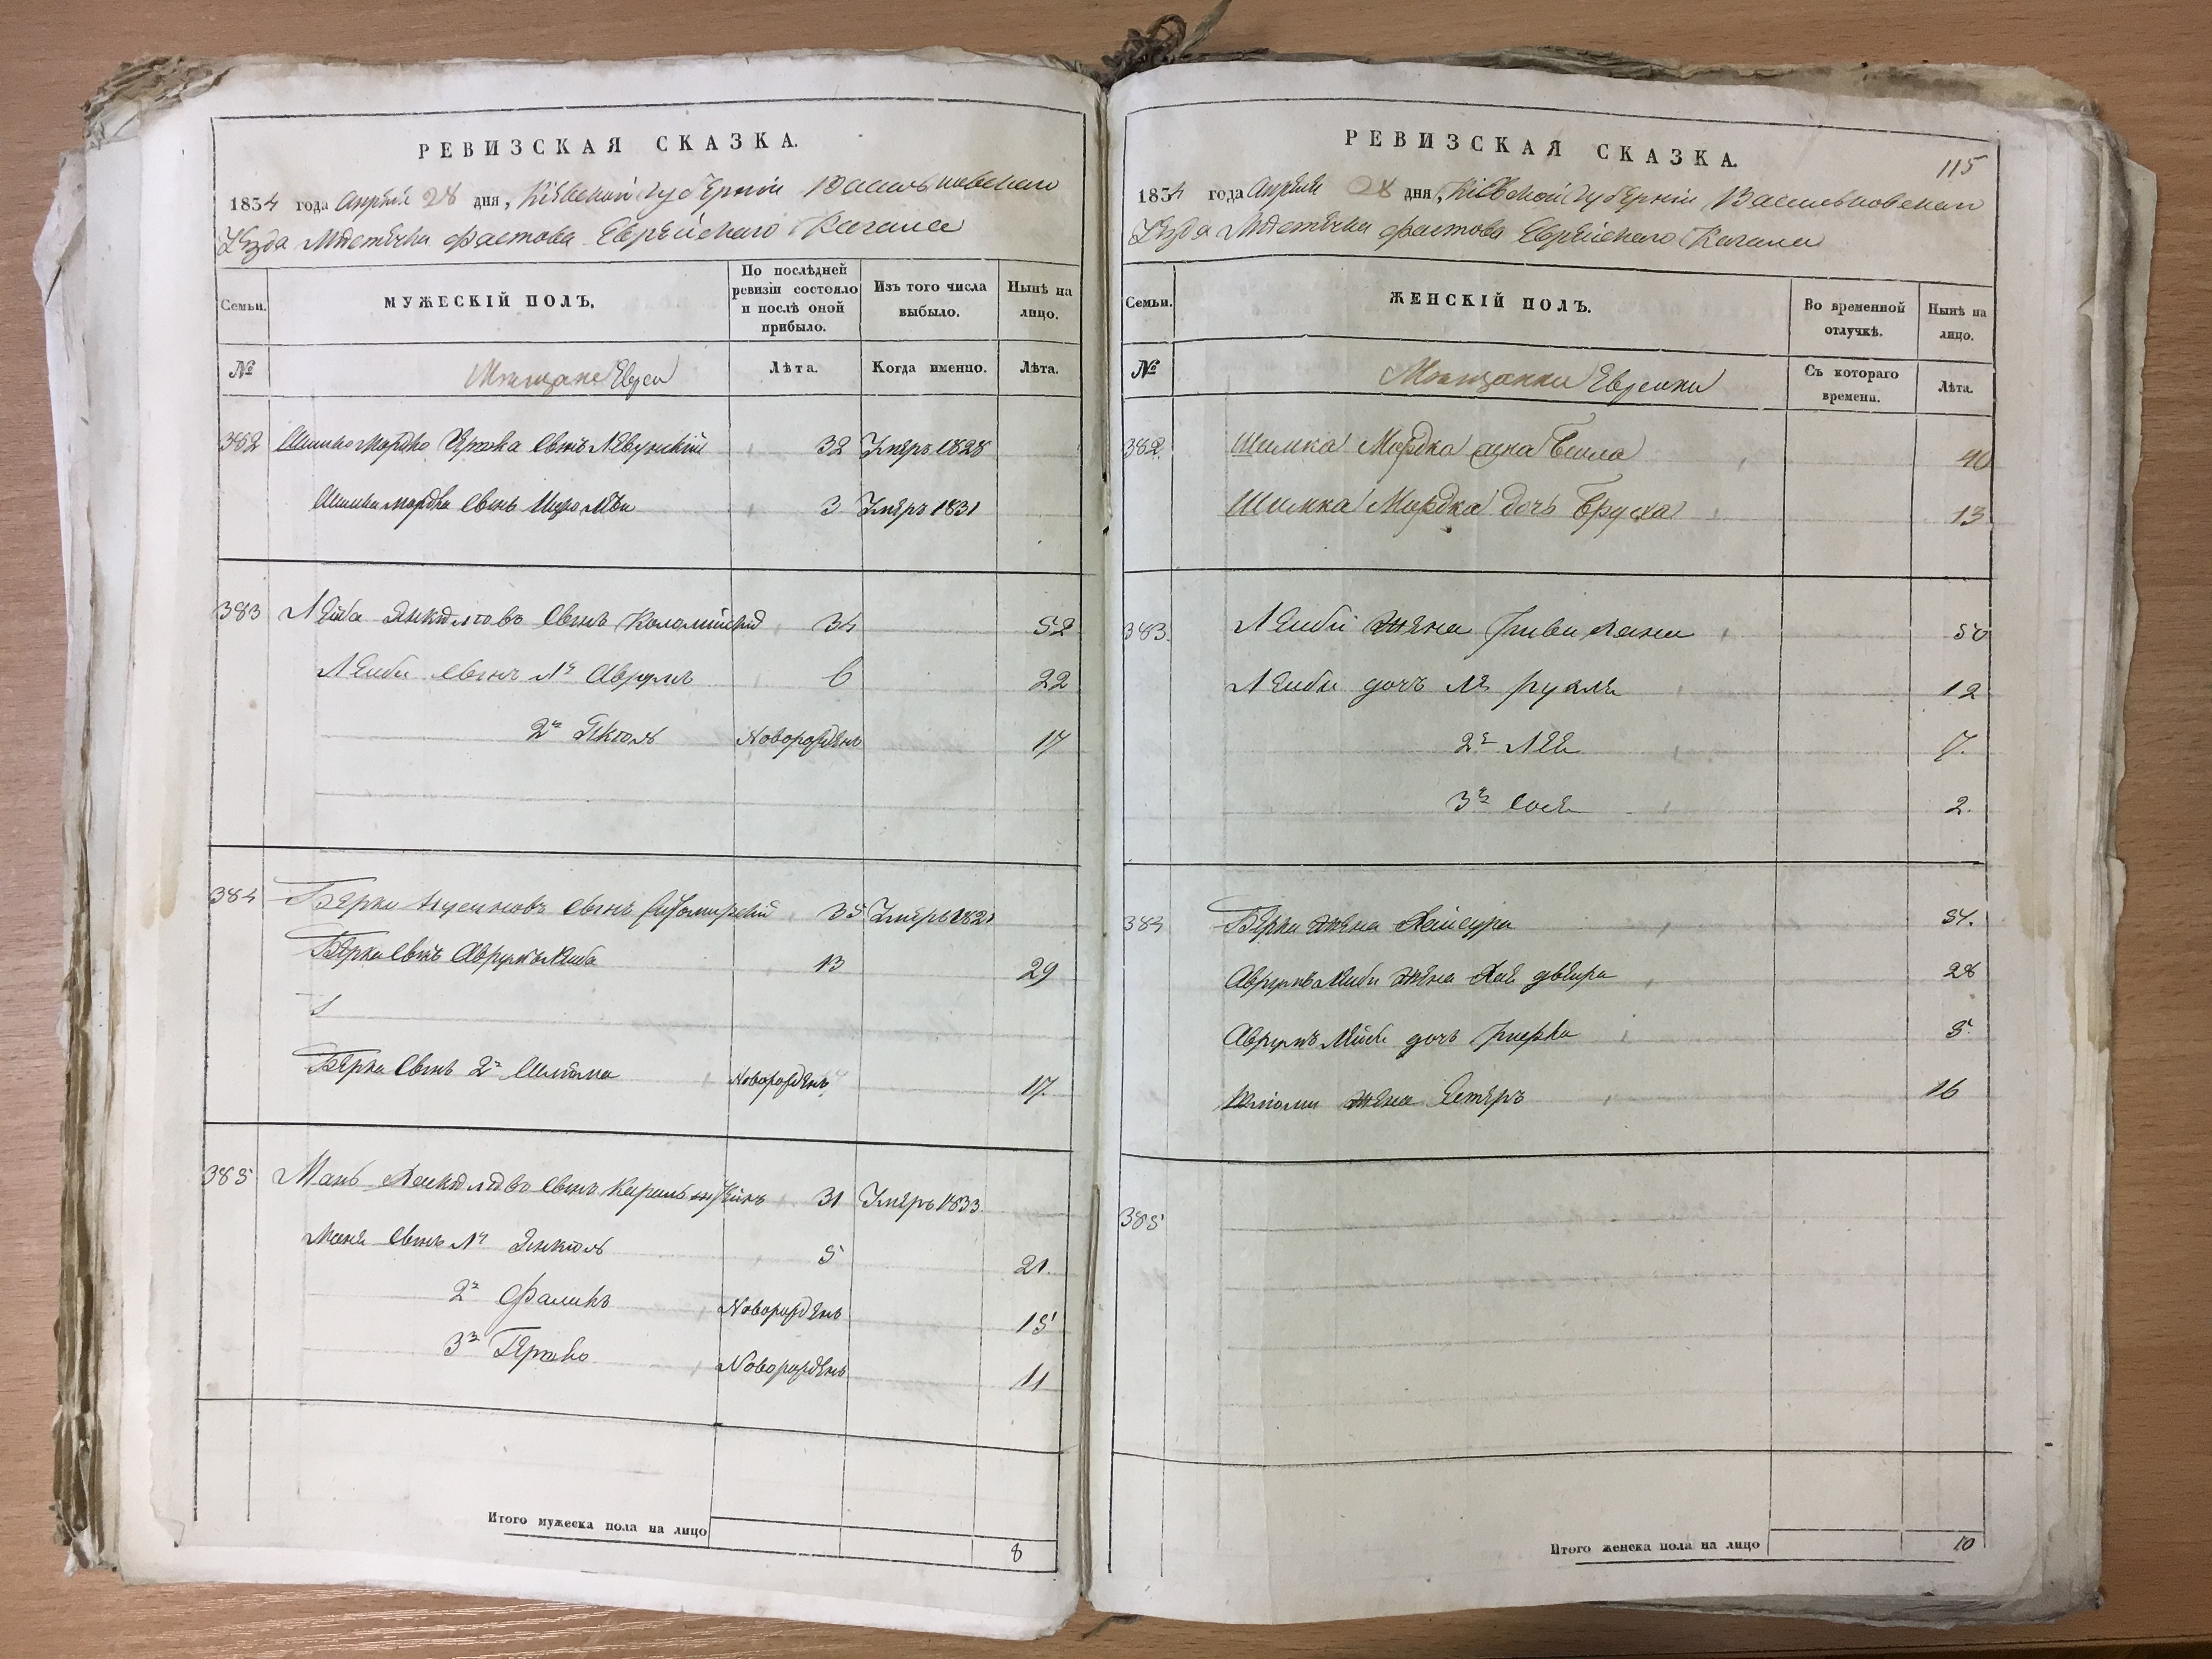 РЕВИЗСКАЯ СКАЗКА.
1834 года Апрѣля 28 дня, Кіевской губерніи Васильковскаго
Уѣзда Мѣстечка Фастова Еврейскаго Кагала
Семьи.
МУЖЕСКІЙ ПОЛЪ,
По послѣдней ревизіи состояло и послѣ оной прибыло.
Изъ того числа выбыло.
Нынѣ на лицо.
№
Мѣщане Евреи
Лѣта.
Когда именно.
Лѣта.
382 Шимко Мордко сынъ 32 Умеръ 1828
Шимки Мордка сынъ 3 Умеръ 1831
383 Лейба Янкелювъ сынъ Коломійскій 34 52
Лейби сынъ 1й Аврумъ 6 22
2й Янкель Новорожденъ 17
384 Берко сынъ 35 Умеръ 1821
Берка сынъ Аврумъ Лейба 13 29
Берка сынъ 2й Шлiома Новорожденъ 17
385 Мань сынъ 31 Умеръ 1833
Маня сынъ 1й Янкель 5 21
2й Фаликъ Новорожденъ 15
3й Гершко Новорожденъ 11
Итого мужеска пола на лицо 8
115
РЕВИЗСКАЯ СКАЗКА.
1834 года Апрѣля 28 дня, Кіевской губерніи Васильковскаго
Уѣзда Мѣстечка Фастова Еврейскаго Кагала
Семьи.
ЖЕНСКІЙ ПОЛЪ.
Во временной отлучкѣ.
Нынѣ на лицо.
№
Мѣщанки Еврейки
Съ котораго времени.
Лѣта.
382. Шимка Мордка жена Бейла 40
Шимка Мордка дочь Бруха 13
383. Лейби жена 50
Лейби дочь 1я 12
2я Лея 7.
3я Сося 2.
384 Берки жена 54.
Аврумъ Лейби жена Хая Двейра 28
Аврумъ Лейби дочь Ривка 5.
Шліоми жена Естеръ 16
385
Итого женска пола на лицо 10